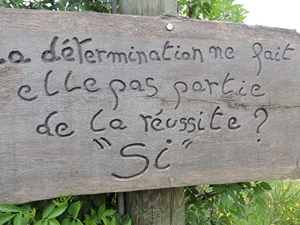 La détermination ne fait
elle pas partie
de la réussite ?
"Si"